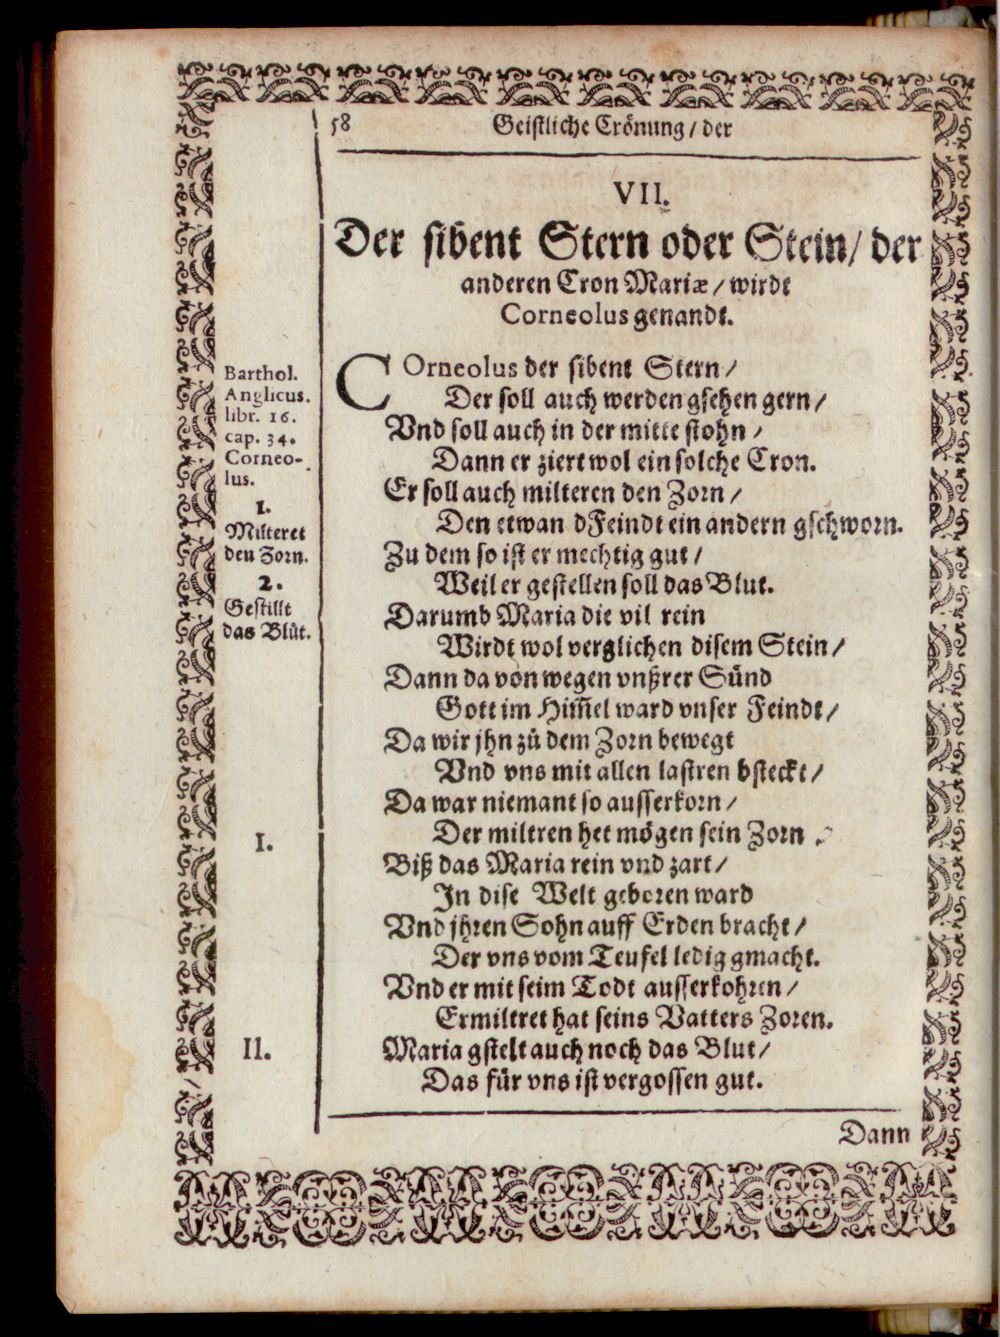 58
Geistliche Crönung / der
VII.
Der sibent Stern oder Stein / der
anderen Cron Mariæ / wirdt
Corneolus genandt.
Barthol.
Anglicus.
libr. 16.
cap. 34.
Corneo-
lus.
1.
Milteret
den Zorn.
2.
Gestillt
das Blůt.
COrneolus der sibent Stern /
Der soll auch werden gsehen gern /
Vnd soll auch in der mitte stohn /
Dann er ziert wol ein solche Cron.
Er soll auch milteren den Zorn /
Den etwan dFeindt ein andern gschworn.
Zu dem so ist er mechtig gut /
Weil er gestellen soll das Blut.
Darumb Maria die vil rein
Wirdt wol verglichen disem Stein /
Dann da von wegen vnßrer Sünd
Gott im Him̃el ward vnser Feindt /
Da wir jhn zů dem Zorn bewegt
Vnd vns mit allen lastren bsteckt /
Da war niemant so ausserkorn /
Der miltren het mögen sein Zorn
I.
Biß das Maria rein vnd zart /
In dise Welt geboren ward
Vnd jhren Sohn auff Erden bracht /
Der vns vom Teufel ledig gmacht.
Vnd er mit seim Todt ausserkohren /
Ermiltret hat seins Vatters Zoren.
II.
Maria gstelt auch noch das Blut /
Das für vns ist vergossen gut.
Dann